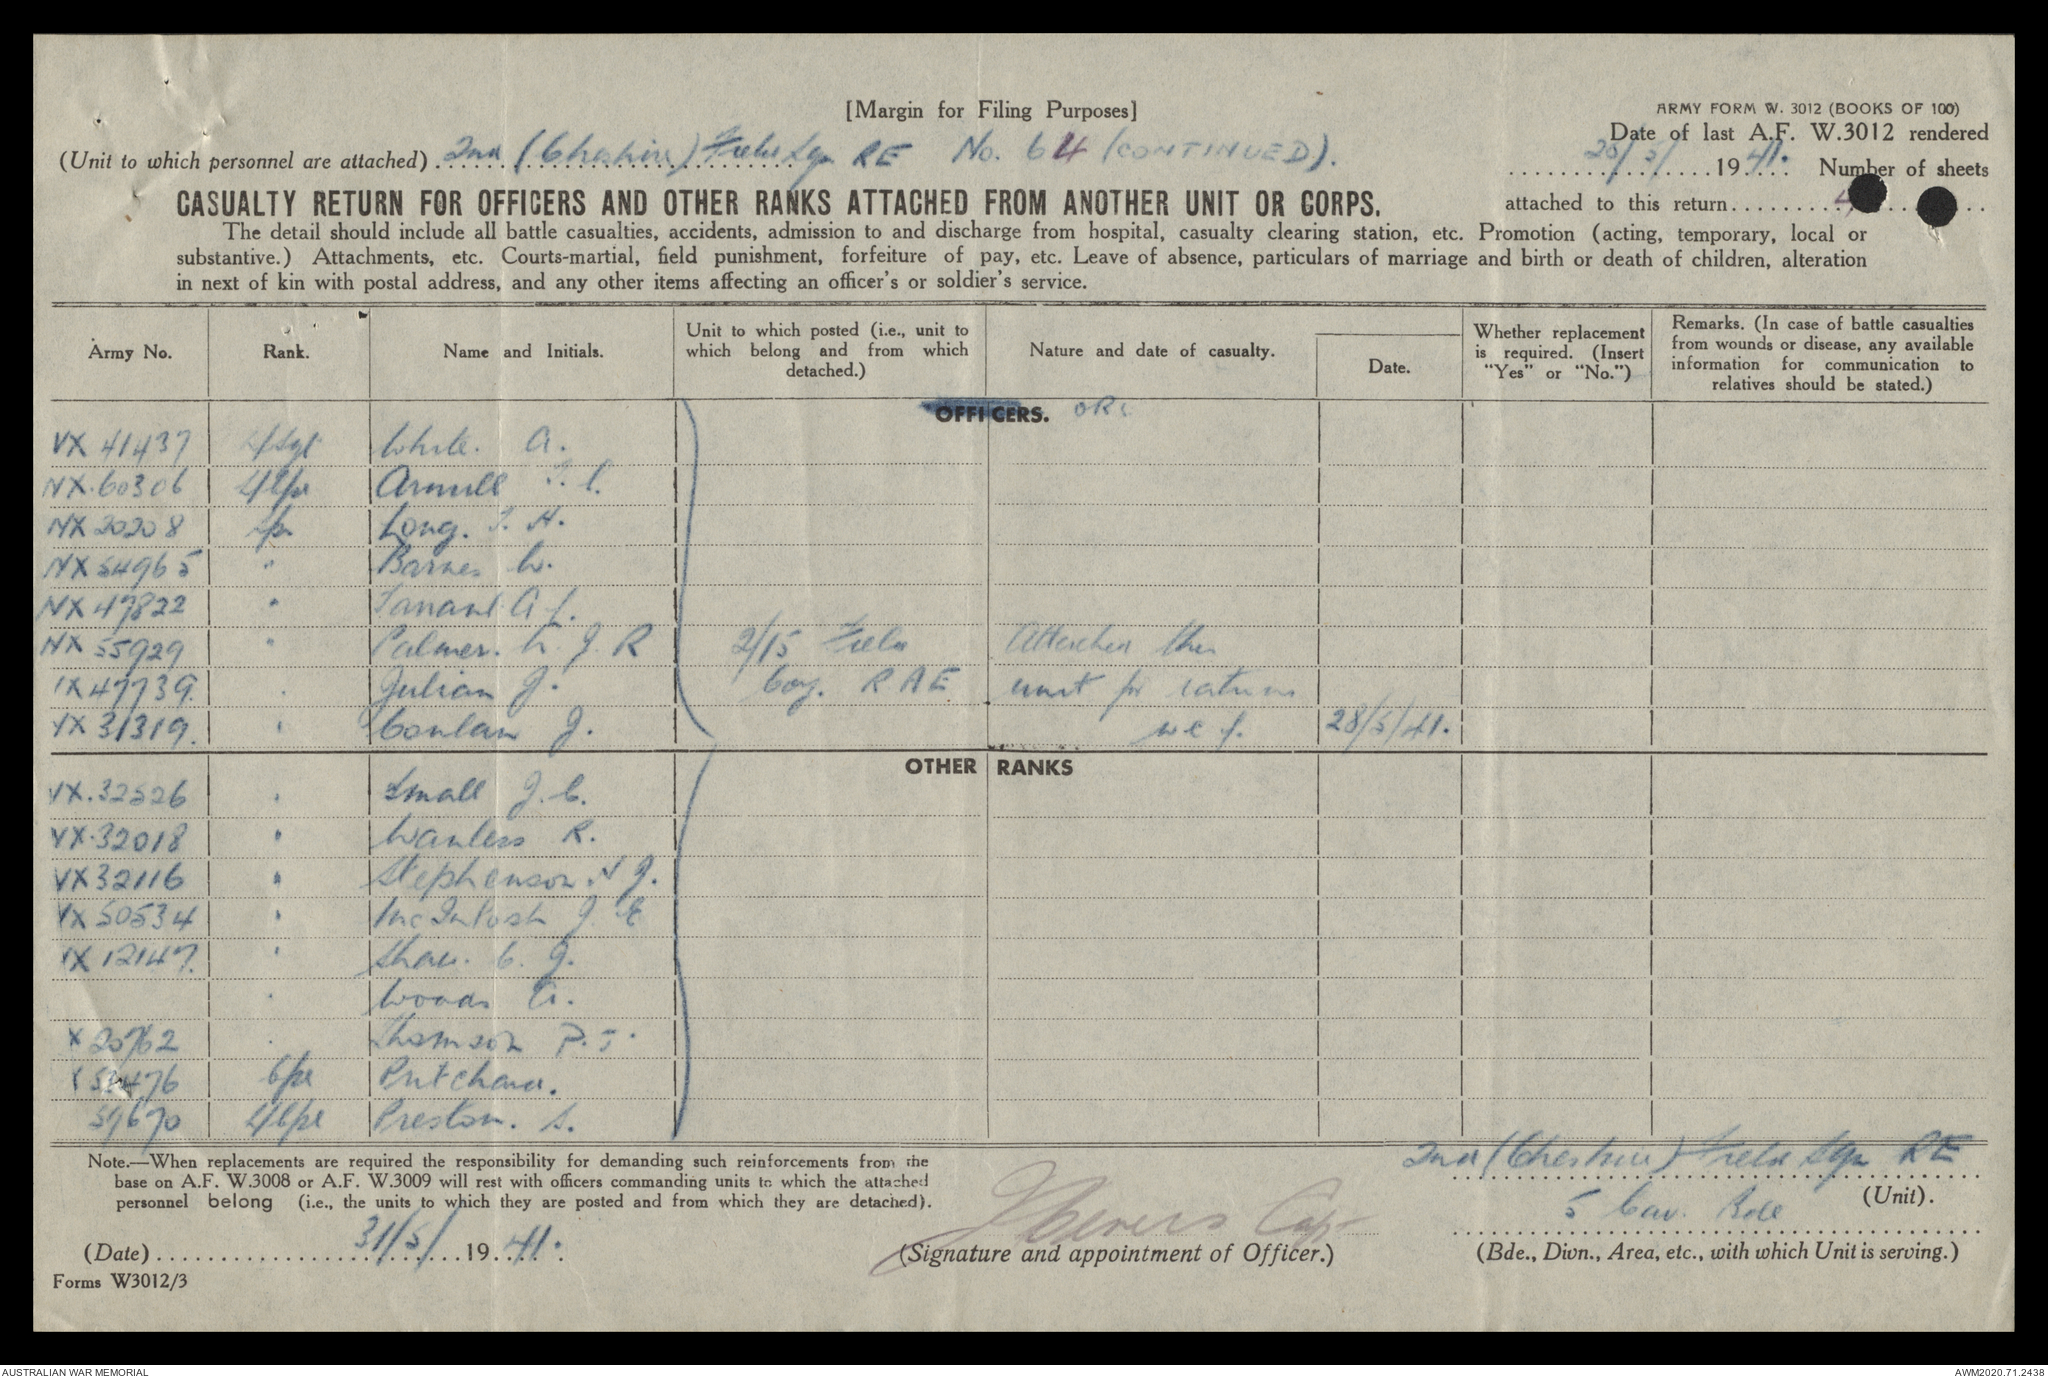 [Margin for Filing Purposes]
ARMY FORM W. 3012 (BOOKS OF 100)
Date of last A.F. W.3012 rendered
(Unit to which personnel are attached) 2nd (Cheshire) Field Sqn RE No. 64 (CONTINUED).
28/5/ 1941. Number of sheets
attached to this return 4
CASUALTY RETURN FOR OFFICERS AND OTHER RANKS ATTACHED FROM ANOTHER UNIT OR CORPS.
The detail should include all battle casualties, accidents, admission to and discharge from hospital, casualty clearing station, etc. Promotion (acting, temporary, local or
substantive.) Attachments, etc. Courts-martial, field punishment, forfeiture of pay, etc. Leave of absence, particulars of marriage and birth or death of children, alteration
in next of kin with postal address, and any other items affecting an officer's or soldier's service.
Army No. Rank. Name and Initials. Unit to which posted (i.e., unit to which belong and from which detached.) Nature and date of casualty. Date. Whether replacement is required. (Insert "Yes" or "No.") Remarks. (In case of battle casualties from wounds or disease, any available information for communication to relatives should be stated.)
OFFICERS. ORs
VX 41437 L/Sgt White. A.
NX.60306 L/Cpl
NX 20208 Spr Long. T. H.
NX 54965 " Barnes W.
NX 47822 "
NX 55929 " Palmer. W. J. R 2/15 Field Attached this
47739. " Julian J. Coy. R A E unit for rations
VX 31319. " Conlan J. w e f. 28/5/41.
OTHER RANKS
VX.32526 " Small J. C.
VX.32018 " Wanless R.
VX32116 " Stephenson. J.
VX 50534 " McIntosh J. E
12147. " Shaw. C. J.
" Woods A.
X 20762 " Thomson P.J.
Cpl Pritchard.
39670 L/Cpl Preston. S.
Note.—When replacements are required the responsibility for demanding such reinforcements from the
base on A.F. W.3008 or A.F. W.3009 will rest with officers commanding units to which the attached
personnel belong (i.e., the units to which they are posted and from which they are detached).
2nd (Cheshire) Field Sqn RE
(Unit).
5 Cav. Bde
(Date) 31/5/ 1941.
Capt
(Signature and appointment of Officer.)
(Bde., Divn., Area, etc., with which Unit is serving.)
Forms W3012/3
AUSTRALIAN WAR MEMORIAL
AWM2020.71.2438